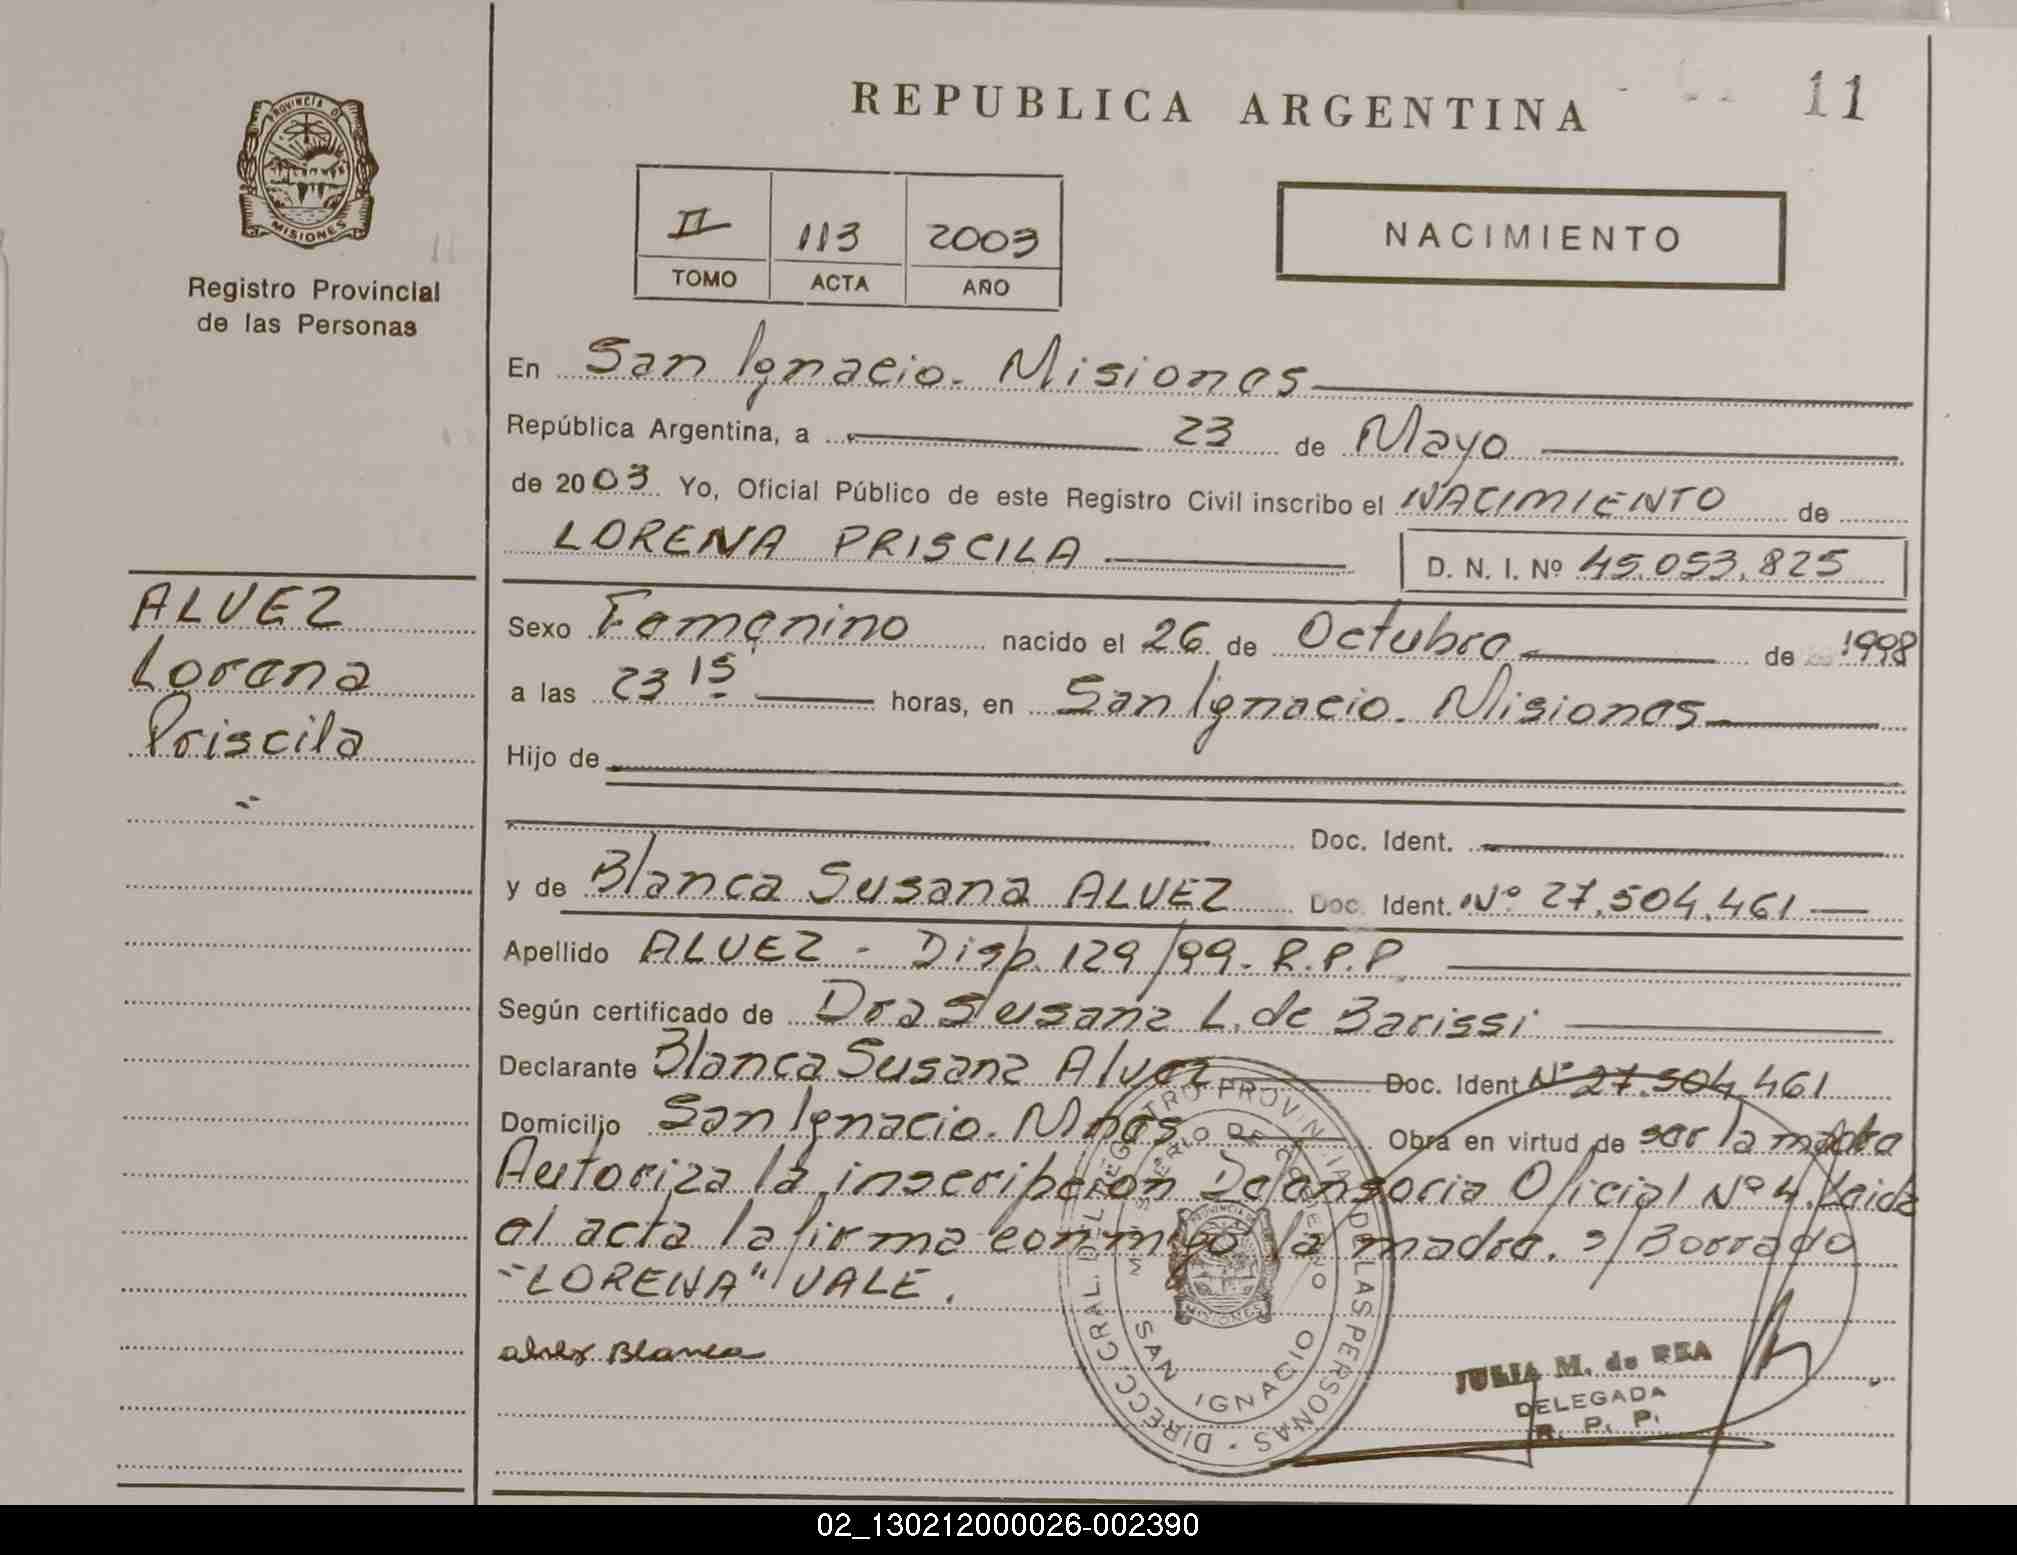 REPUBLICA ARGENTINA
11
PROVINCIA DE
MISIONES
Registro Provincial
de las Personas
II 113 2003
TOMO ACTA AÑO
NACIMIENTO
En San Ignacio. Misiones
República Argentina, a 23 de Mayo
de 2003 Yo, Oficial Público de este Registro Civil inscribo el NACIMIENTO de
LORENA PRISCILA
D. N. I. Nº 45.053.825
ALVEZ
Lorena
Priscila
Sexo Femenino nacido el 26 de Octubre de 1998
a las 23 15 horas, en San Ignacio. Misiones
Hijo de
Doc. Ident.
y de Blanca Susana ALVEZ Doc. Ident. Nº 27.504.461
Apellido ALVEZ - Disp. 129/99. R.P.P.
Según certificado de Dra Susana L. de Barissi
Declarante Blanca Susana Alvez Doc. Ident Nº 27.504.461
Domicilio San Ignacio. Mnes Obra en virtud de ser la madre
Autoriza la inscripcion Defensoria Oficial Nº 4. Leida
el acta la firma conmigo la madre. s/Borrado
"LORENA" VALE.
alvez Blanca
DIRECC. GRAL. DEL REGISTRO PROVINCIAL DE LAS PERSONAS
MINISTERIO DE GOBIERNO
PROVINCIA DE
MISIONES
SAN IGNACIO
JULIA M. de REA
DELEGADA
R. P. P.
02_130212000026-002390